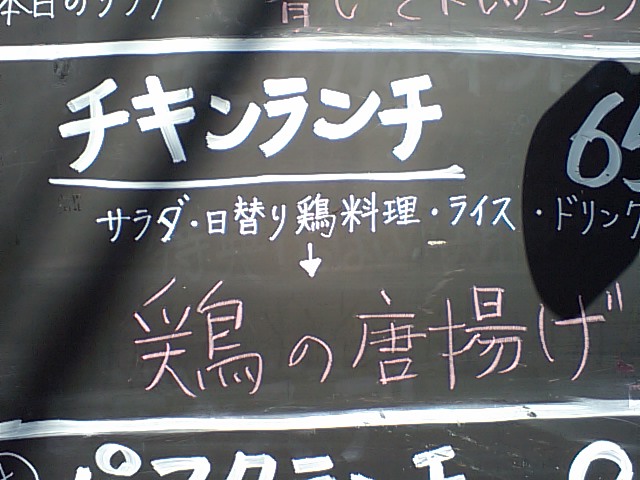 本日のランチ
チキンランチ 65
サラダ・日替り鶏料理・ライス・ドリンク
↓
鶏の唐揚げ
パスタランチ